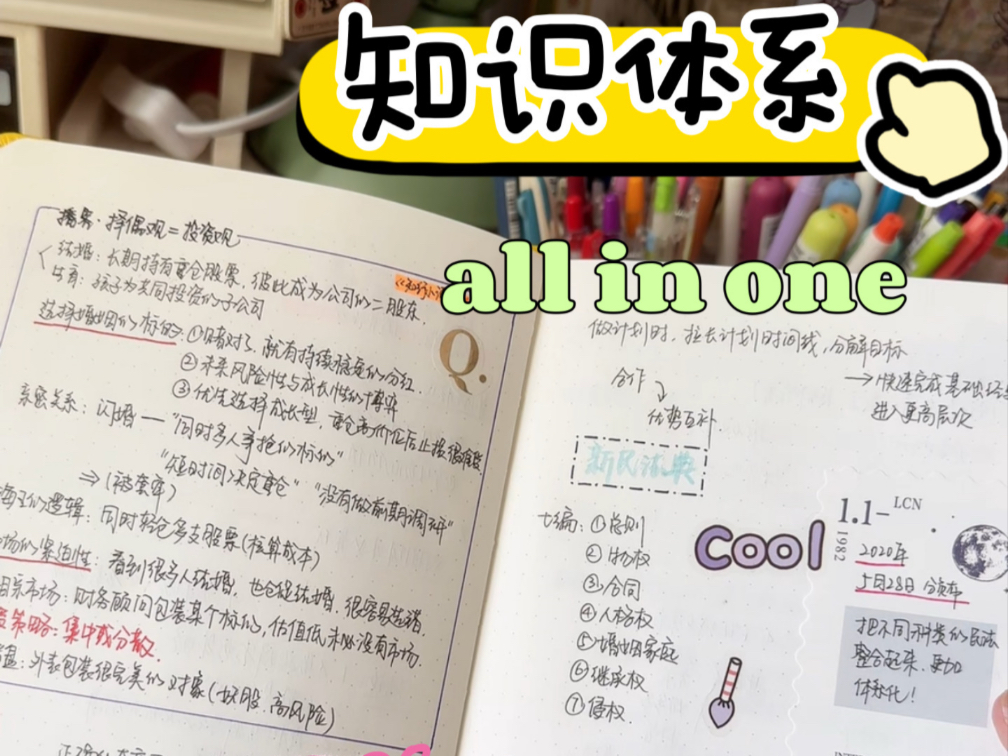 知识体系
all in one
播客：择偶观=投资观
结婚：长期持有重仓股票，彼此成为公司的二股东.
生育：孩子为共同投资的子公司
Q.
选择婚姻的标的：①赌对了，就有持续稳定的分红
②未来风险性与成长性的博弈
③优先选择成长型，重仓高价位后止损很难受
亲密关系：闪婚—“同时多人争抢的标的”
“短时间决定重仓” “没有做前期调研”
⇒(被套牢)
海王的逻辑：同时轻仓多支股票(核算成本)
场的紧迫性：看到很多人结婚，也会捉结婚，很容易盲猜.
相亲市场：财务顾问包装某个标的，估值低未必没有市场.
策略：集中或分散
外表包装很完美的对象(妖股、高风险)
做计划时，拉长计划时间线，分解目标
→快速完成基础任务
进入更高层次
合作
优势互补.
新民法典
七编：①总则
②物权
③合同
④人格权
⑤婚姻家庭
⑥继承权
⑦侵权.
cool
1.1-LCN
1982
2020年
5月28日 分类布
把不同种类的民法
整合起来，更加
体系化！